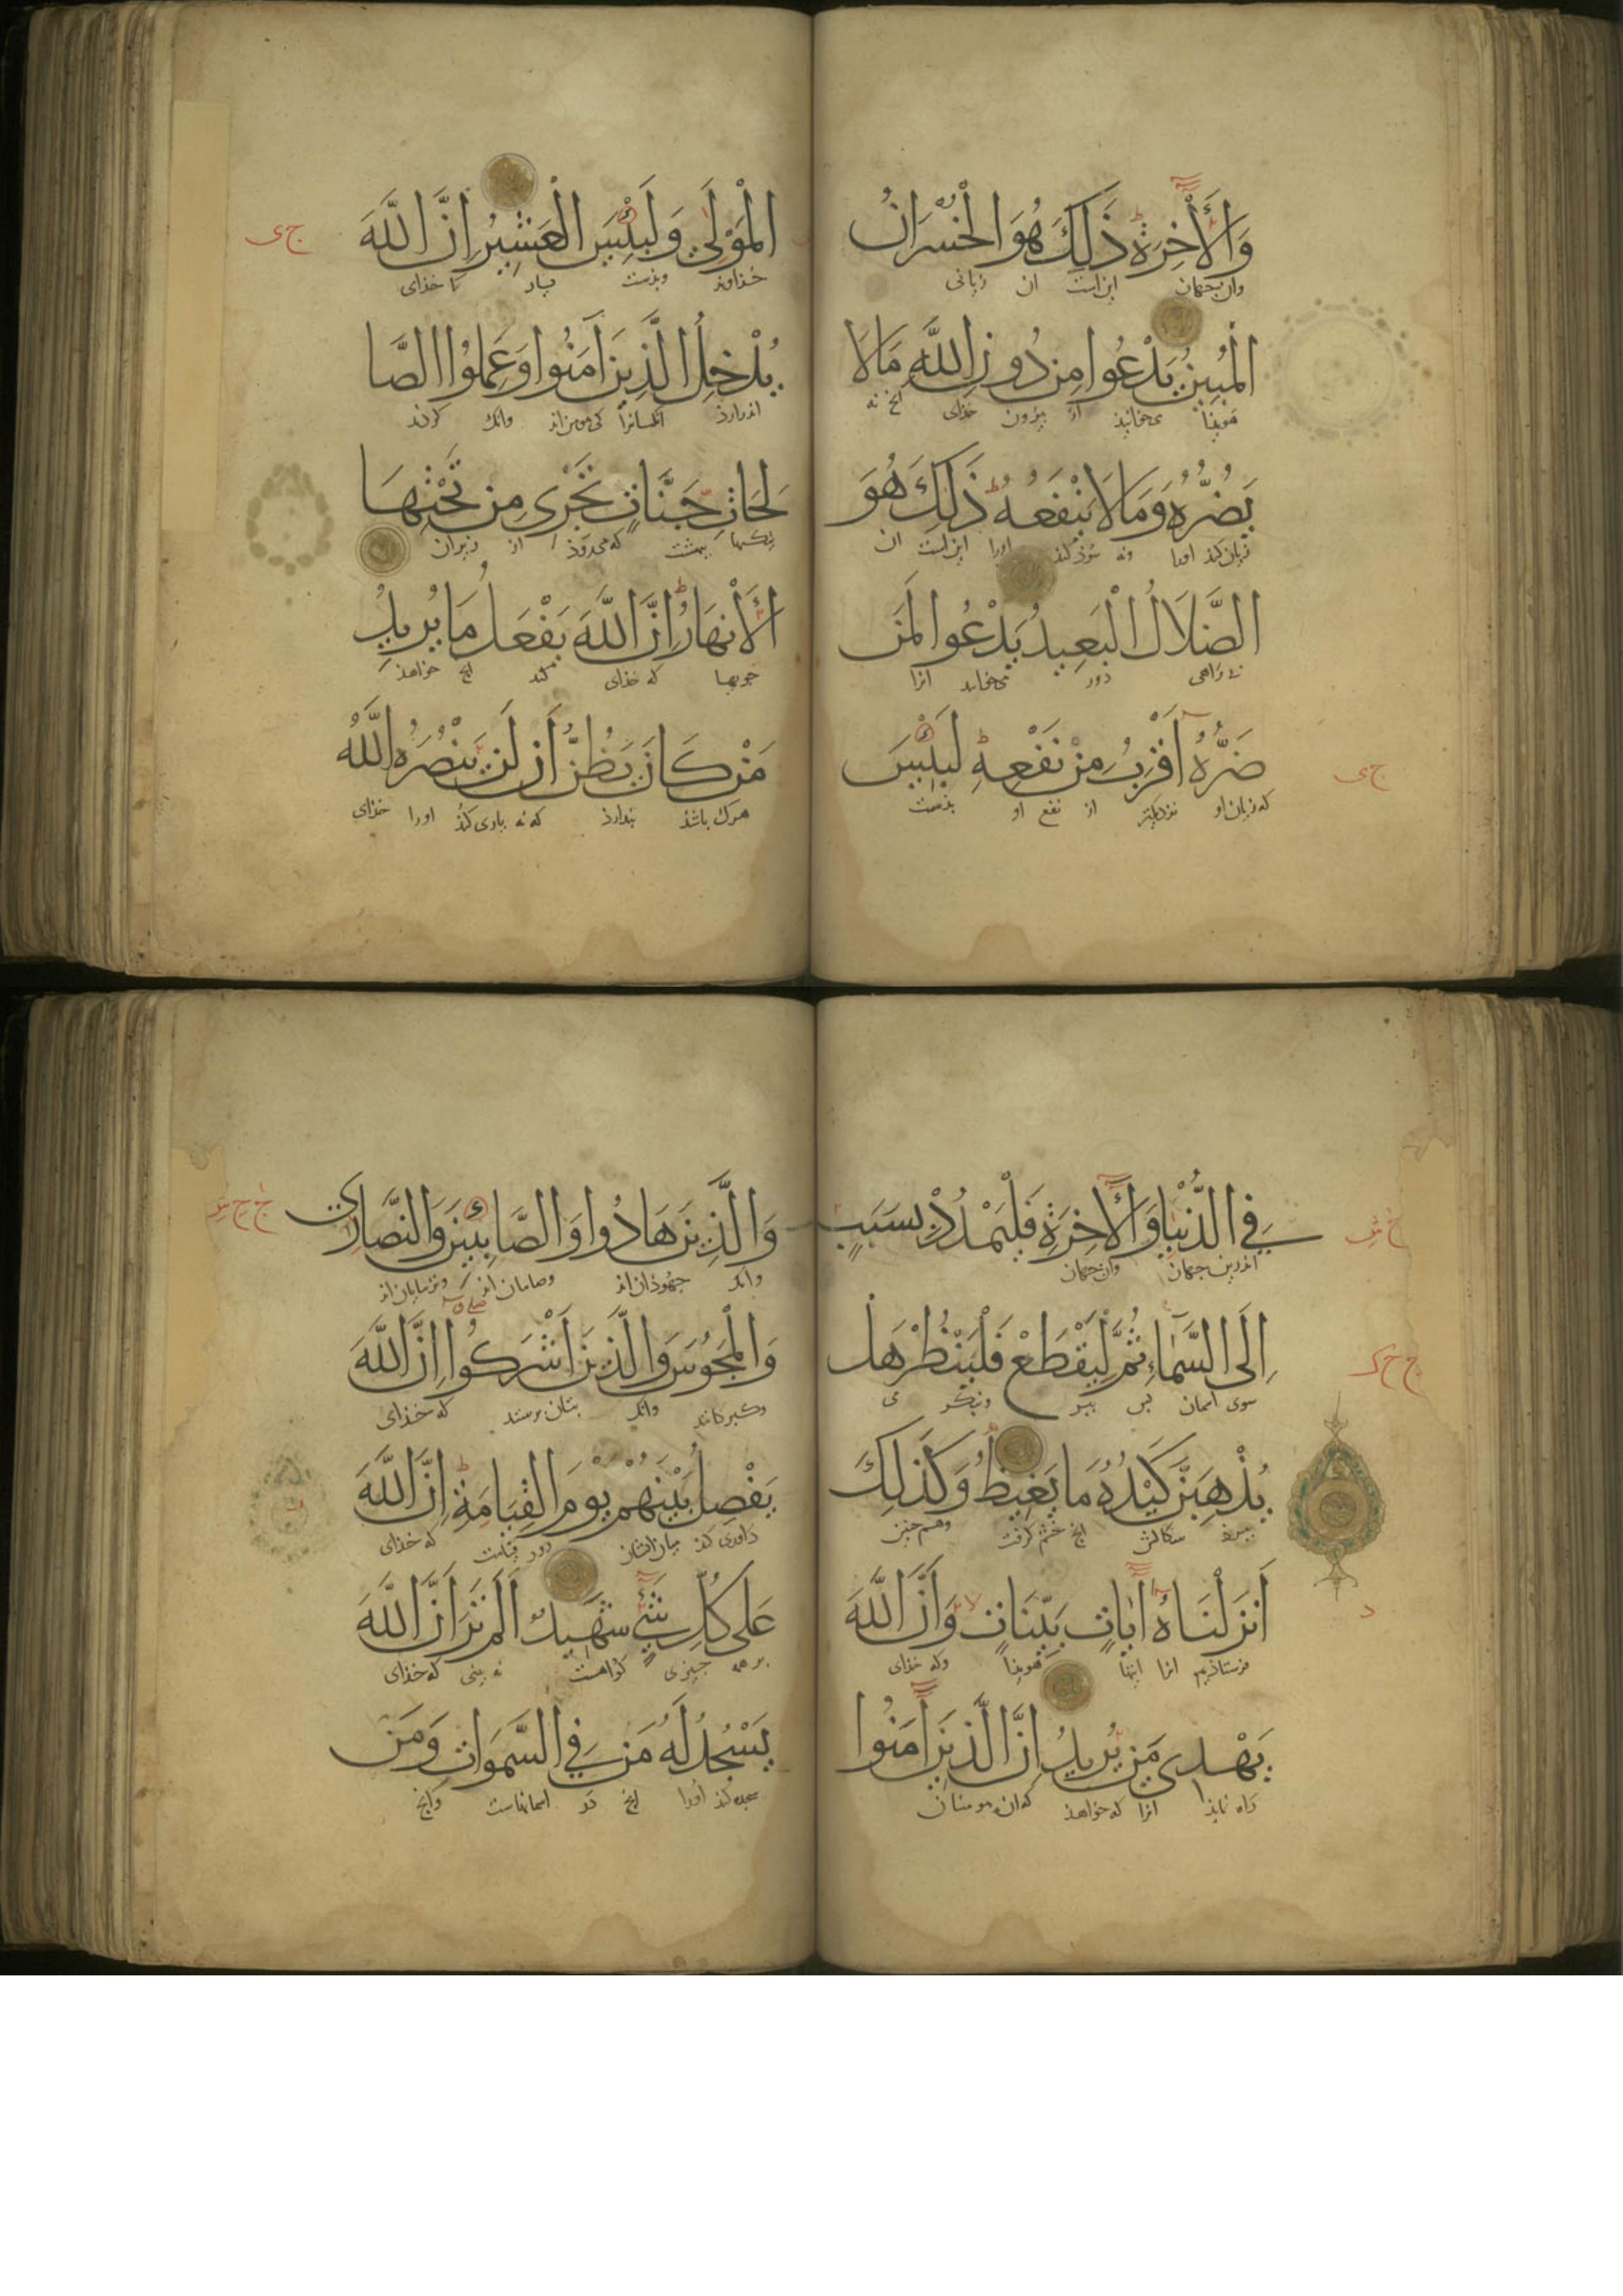 وَالْأَخِرَةَ ذَلِكَ هُوَ الْخُسْرَانُ
وان جهان این است ان زیانی
الْمُبِينُ يَدْعُوا مِن دُونِ اللَّهِ مَا لَا
هویذا می خوانیذ از بیرون خذای انچ نه
يَضُرُّهُ وَمَا لَا يَنْفَعُهُ ذَلِكَ هُوَ
زیان کند اورا ونه سوذ کند اورا این است ان
الضَّلَالُ الْبَعِيدُ يَدْعُوا لَمَن
بی راهی دور می خواند انرا
ضَرُّهُ أَقْرَبُ مِن نَفْعِهِ لَبِئْسَ
که زیان او نزدیکتر از نفع او بذست
ج ی
الْمَوْلَى وَلَبِئْسَ الْعَشِيرُ إِنَّ اللَّهَ
ج ی
خذاوند وبذست یار خذای
يُدْخِلُ الَّذِينَ آمَنُوا وَعَمِلُوا الصَّا
اندرارذ انکسانرا کی مومن اند وانک کردند
لِحَاتِ جَنَّاتٍ تَجْرِي مِن تَحْتِهَا
نیکیها بهشت که می روذ از زیران
الْأَنْهَارُ إِنَّ اللَّهَ يَفْعَلُ مَا يُرِيدُ
جویها که خذای کند انچ خواهذ
مَنْ كَانَ يَظُنُّ أَن لَن يَنْصُرَهُ اللَّهُ
هرک باشذ پندارذ که نه یاری کند اورا خذای
فِي الدُّنْيَا وَالْآخِرَةِ فَلْيَمْدُدْ بِسَبَبٍ
اندرین جهان وان جهان
إِلَى السَّمَاءِ ثُمَّ لِيَقْطَعْ فَلْيَنْظُرْ هَلْ
سوی اسمان پس ببر وبنگر
يُذْهِبَنَّ كَيْدُهُ مَا يَغِيظُ وَكَذَلِكَ
ببرد سکالش انچ خشم گرفت وهم چنین
أَنْزَلْنَاهُ آيَاتٍ بَيِّنَاتٍ وَأَنَّ اللَّهَ
فرستاذیم انرا ایتها هویذا وکه خذای
يَهْدِي مَن يُرِيدُ إِنَّ الَّذِينَ آمَنُوا
راه نمایذ انرا که خواهذ که ان مومنان
وَالَّذِينَ هَادُوا وَالصَّابِئِينَ وَالنَّصَارَى
وانک جهوذان اند وصابیان اند وترسایان اند
وَالْمَجُوسَ وَالَّذِينَ أَشْرَكُوا إِنَّ اللَّهَ
وگبرکانند وانک بتان پرستند که خذای
يَفْصِلُ بَيْنَهُمْ يَوْمَ الْقِيَامَةِ إِنَّ اللَّهَ
داوری کند میان ایشان روز قیامت که خذای
عَلَى كُلِّ شَيْءٍ شَهِيدٌ أَلَمْ تَرَ أَنَّ اللَّهَ
بر همه چیزی گواهست نه بینی که خذای
يَسْجُدُ لَهُ مَن فِي السَّمَوَاتِ وَمَن
سجده کند اورا انچ در اسمانهاست وانچ